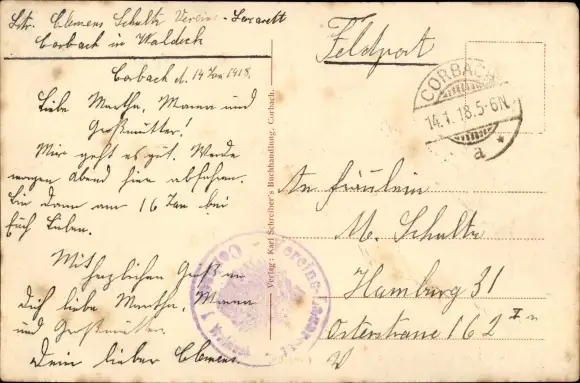 Lstr. Clemens Schultz Vereins-Lazarett
Corbach in Waldeck
Corbach d. 14 Jan 1918.
Liebe Martha, Mama und
Großmutter!
Mir geht es gut. Werde
morgen Abend hier abfahren.
Bin dann am 16 Jan bei
Euch Lieben.
Mit
herzlichen Gruß an
Dich liebe Martha, Mama
und Großmutter
Dein lieber Clemens.
Verlag: Karl Schreiber's Buchhandlung, Corbach.
Feldpost
CORBACH
14.1.18.5-6N.
a *
An Fräulein
M. Schultz
Hamburg 31
Osterstrasse 162 II
V
Vereins-Lazarett